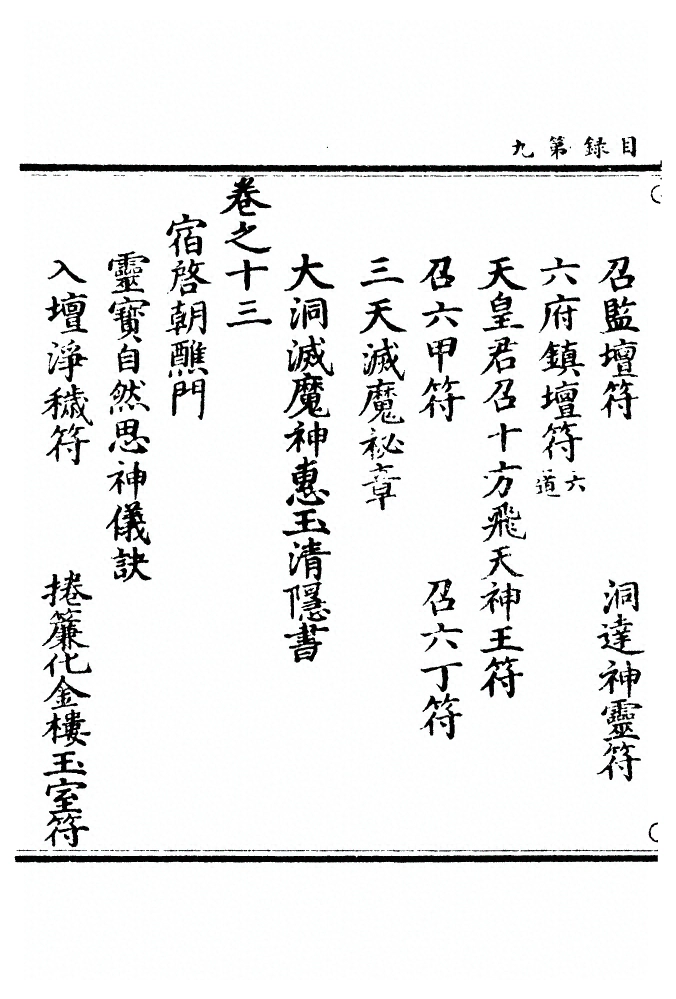 目録第九
召監壇符　洞達神靈符
六府鎮壇符六道
天皇君召十方飛天神王符
召六甲符　召六丁符
三天滅魔祕章
大洞滅魔神惠玉清隱書
卷之十三
宿啓朝醮門
靈寳自然思神儀訣
入壇淨穢符　捲簾化金樓玉室符